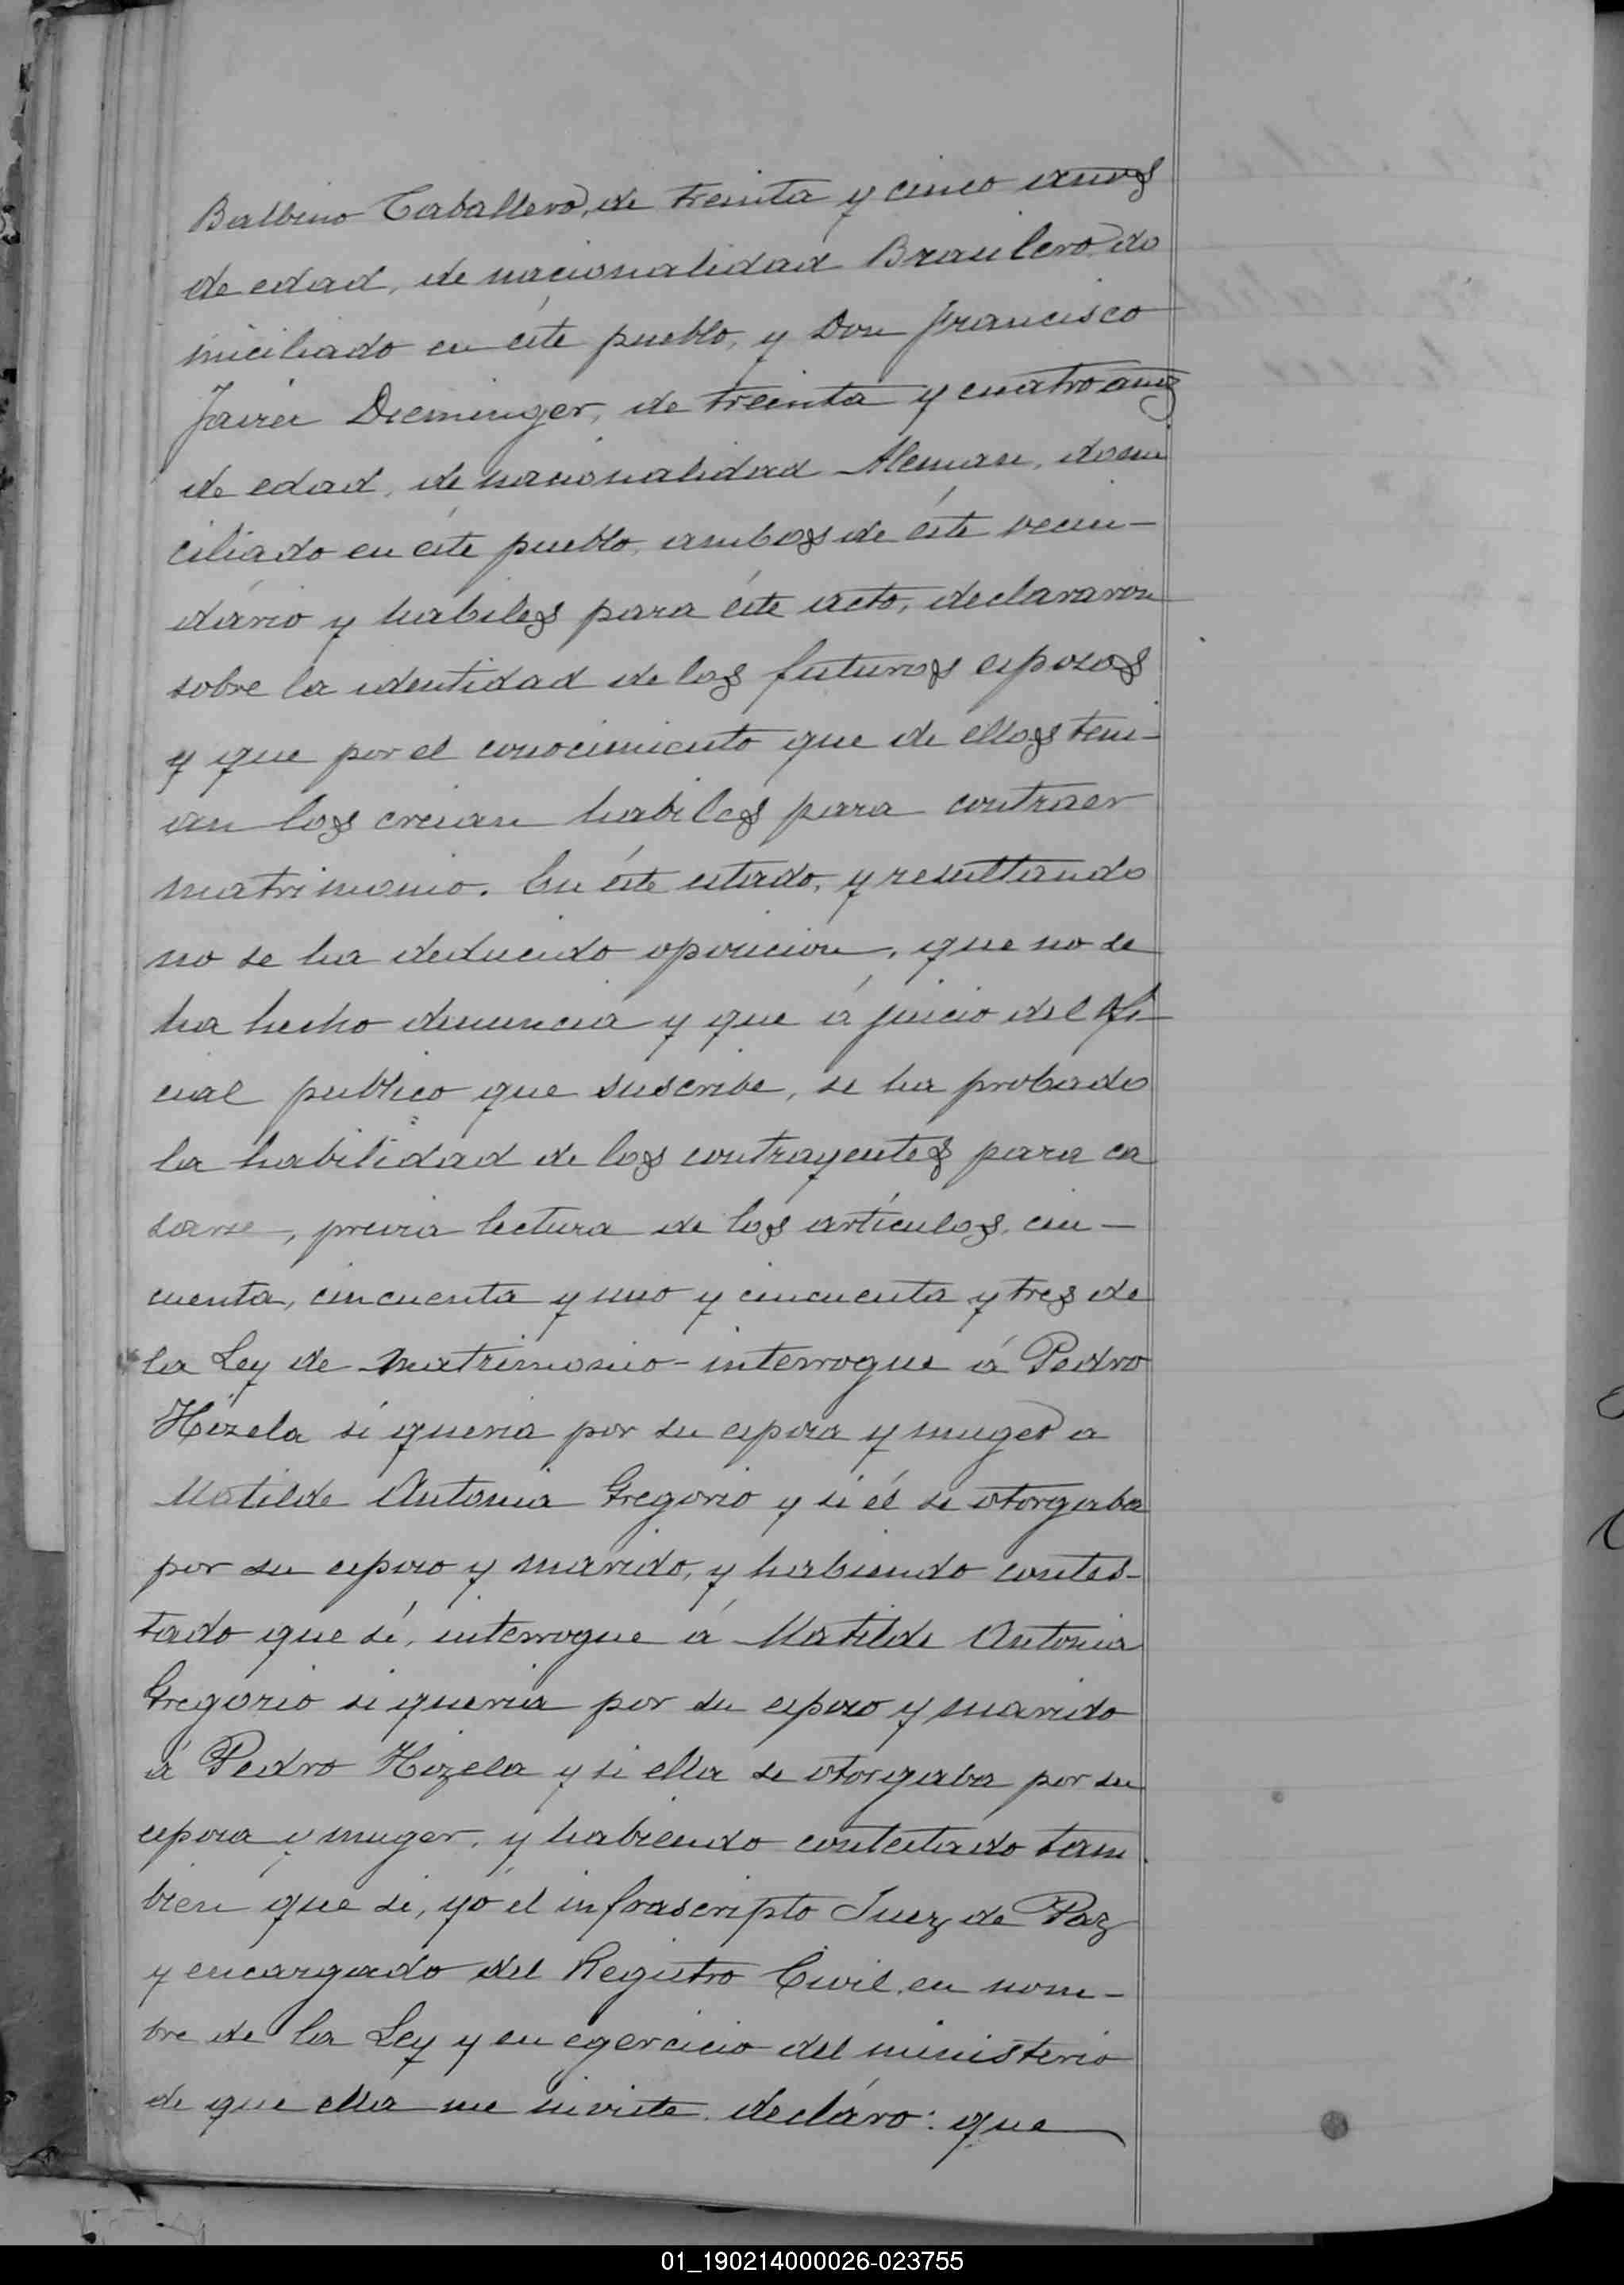 Balbino Caballero, de treinta y cinco años
de edad, de nacionalidad Brasilero do
miciliado en éste pueblo, y Don Francisco
Javier Dieminger, de treinta y cuatro años
de edad, de nacionalidad Aleman, domi
ciliado en éste pueblo, ambos de éste vecin-
dário y hábiles para éste acto, declararon
sobre la identidad de los futuros esposos
y que por el conocimiento que de ellos tení-
an los creian habiles para contraer
matrimonio. En éste estado, y resultando
no se ha deducido oposicion, que no se
ha hecho denuncia y que á juicio del Ofi
cial publico que suscribe, se ha probado
la habilidad de los contrayentes para ca
sarse, previa lectura de los artículos cin-
cuenta, cincuenta y uno y cincuenta y tres de
la Ley de Matrimonio - interrogue á Pedro
Hizela si queria por su esposa y muger a
Matilde Antonia Gregorio y si él se otorgaba
por su esposo y marido, y habiendo contes-
tado que sí, interrogue á Matilde Antonia
Gregorio si queria por su esposo y marido
á Pedro Hizela y si ella se otorgaba por su
esposa y muger, y habiendo contestado tam
bien que si, yó el infrascripto Juez de Paz
y encargado del Registro Civil, en nom-
bre de la Ley y en egercicio del ministerio
de que ella me inviste. decláro: que
01_190214000026-023755